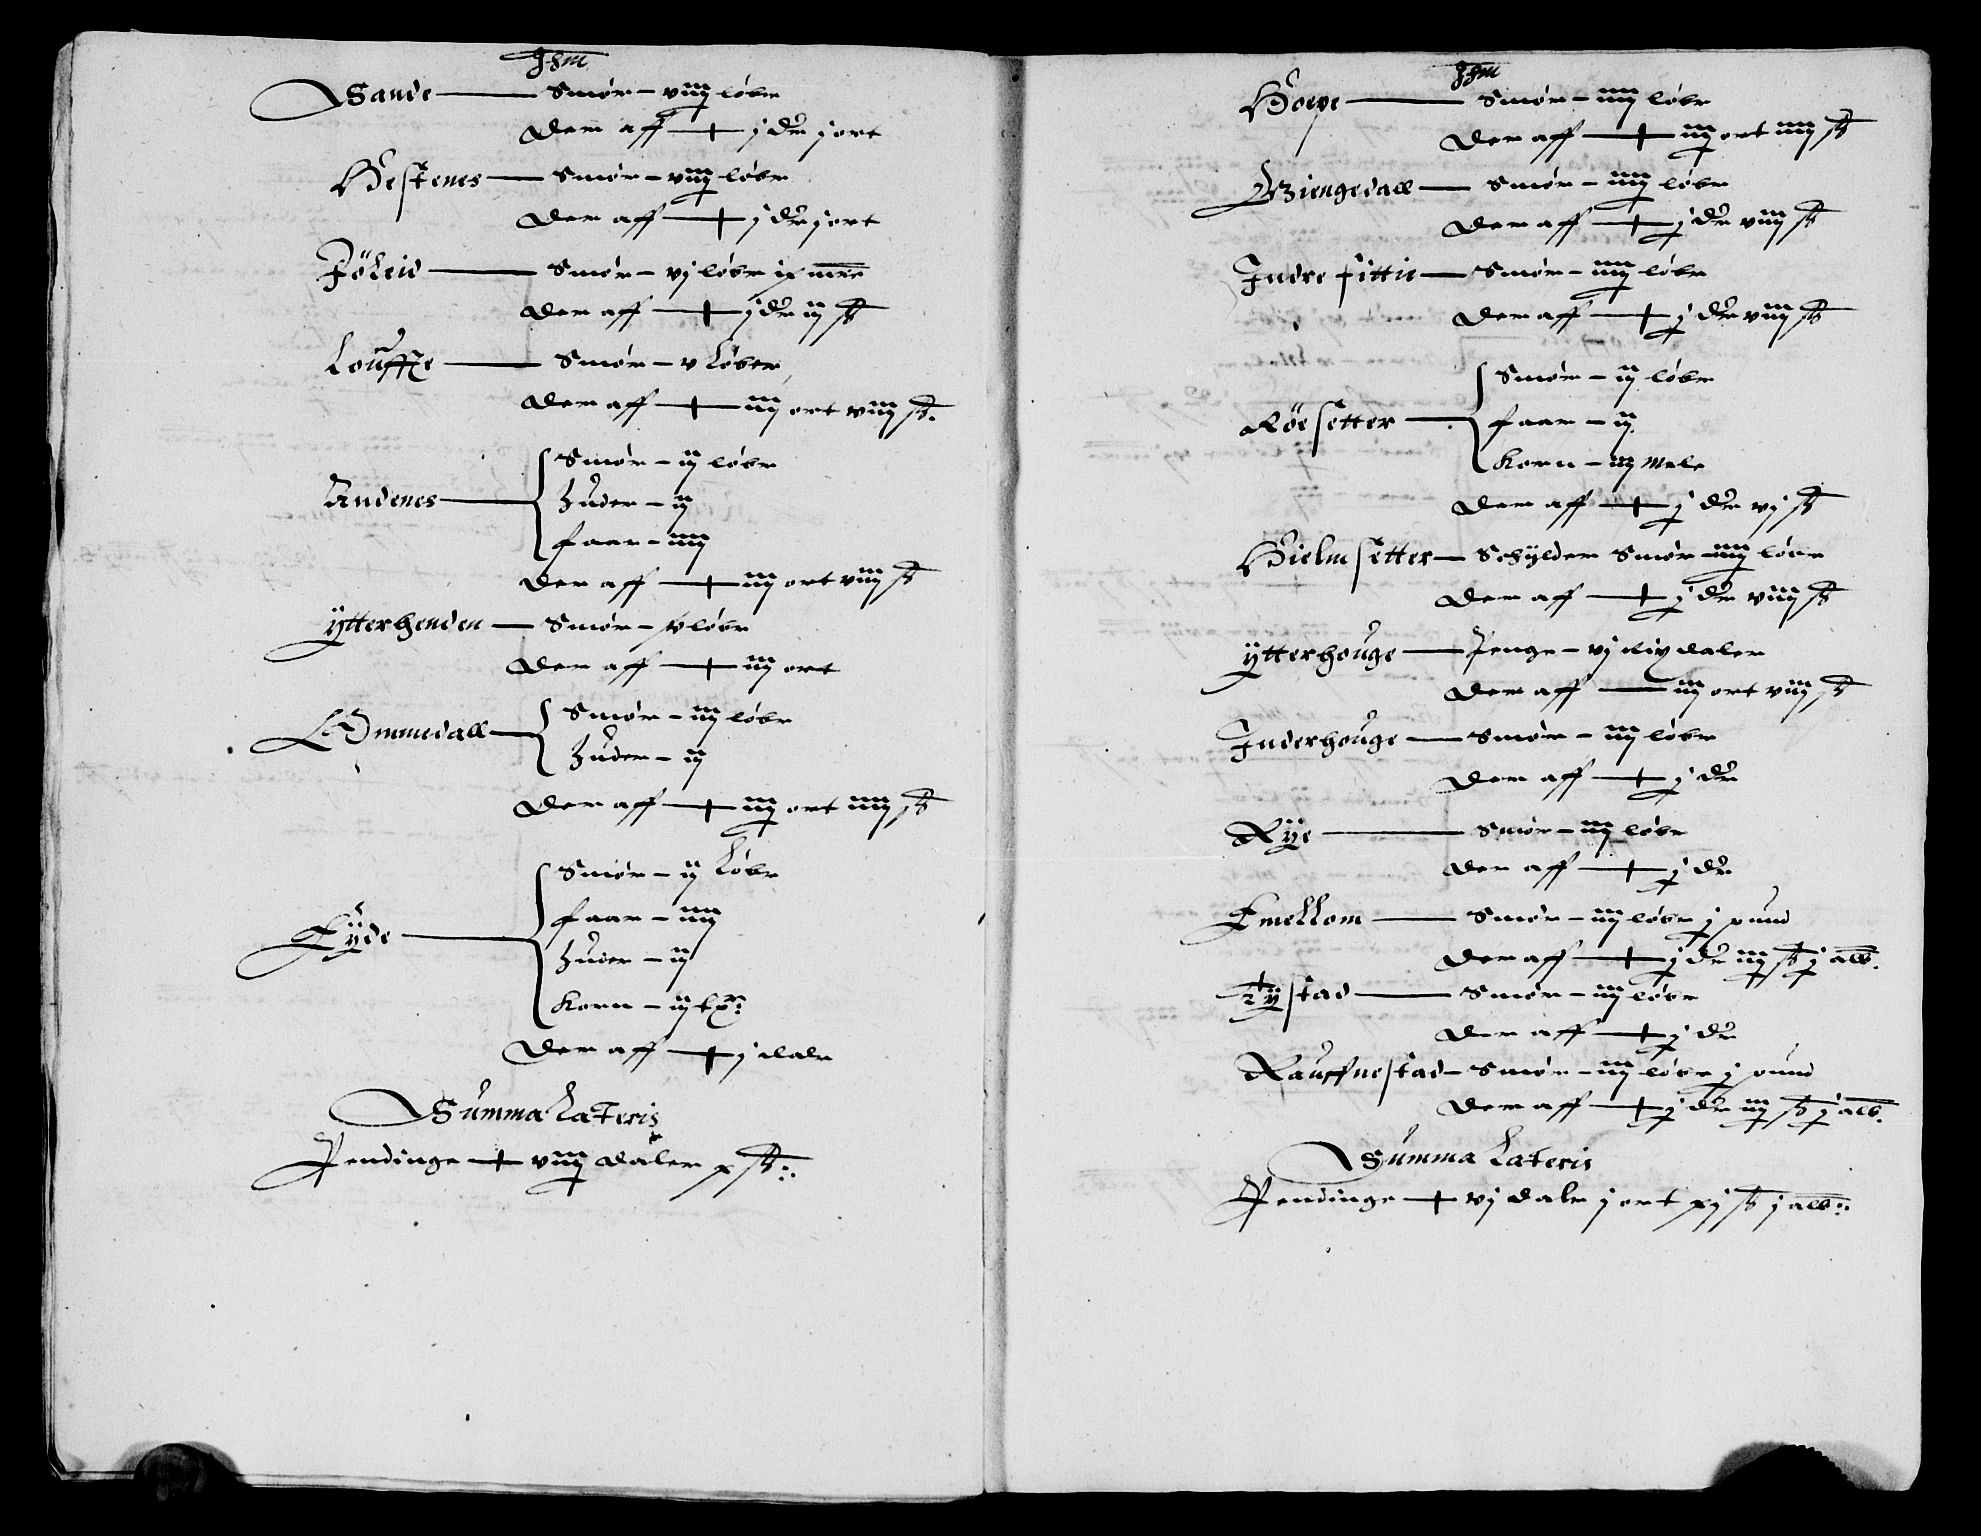 Jhm
Sande — Smør – viij løbr
Der aff — j dr j ort
Hestenes — Smør – viij løbr
Der aff — j dr j ort
Föleid — Smør – vj løbr ix mrc
Der aff — j dr ij ß
Louffue — Smør – v Løber
Der aff — iij ort viij ß.
Andenes — Smør – ij løbr
Huder – ij
faar – iiij
Der aff — iij ort viij ß
ÿtterhenden — Smør – v løbr
Der aff — iij ort
Ommedall — Smør – iij løbr
Huder – ij
Der aff — iij ort iiij ß
Eÿde — Smør – ij Løbr
faar – iiij
Huder – ij
Korn – ij tr:
Der aff — j dalr
Summa Lateris
Pendinge — viij daler x ß:
Jhm
Hoepe — Smør – iiij løbr
Der aff — iij ort iiij ß
Giengedall — Smør – iiij løbr
Der aff — j dr viij ß
Indre fittie — Smør – iiij løbr
Der aff — j dr viij ß
Röesetter — Smør – ij løbr
faar – ij
Korn – iij mele
Der aff — j dr vj ß
Hielmsetter — Schÿlder Smør – iiij løbr
Der aff — j dr viij ß
ÿtterhouge — Penge – vj daler
Der aff — iij ort viij ß
Inderhouge — Smør – iij løbr
Der aff — j dr
Rÿe — Smør – iij løbr
Der aff — j dr
Emellom — Smør – iij løbr j pund
Der aff — j dr iij ß j alb.
Tÿstad — Smør – iij løbr
Der aff — j dr
Rauffnestad – Smør – iij løbr j pund
Der aff — j dr iij ß j alb.
Summa Lateris
Pendinge — vj dalr j ort xj ß j alb: